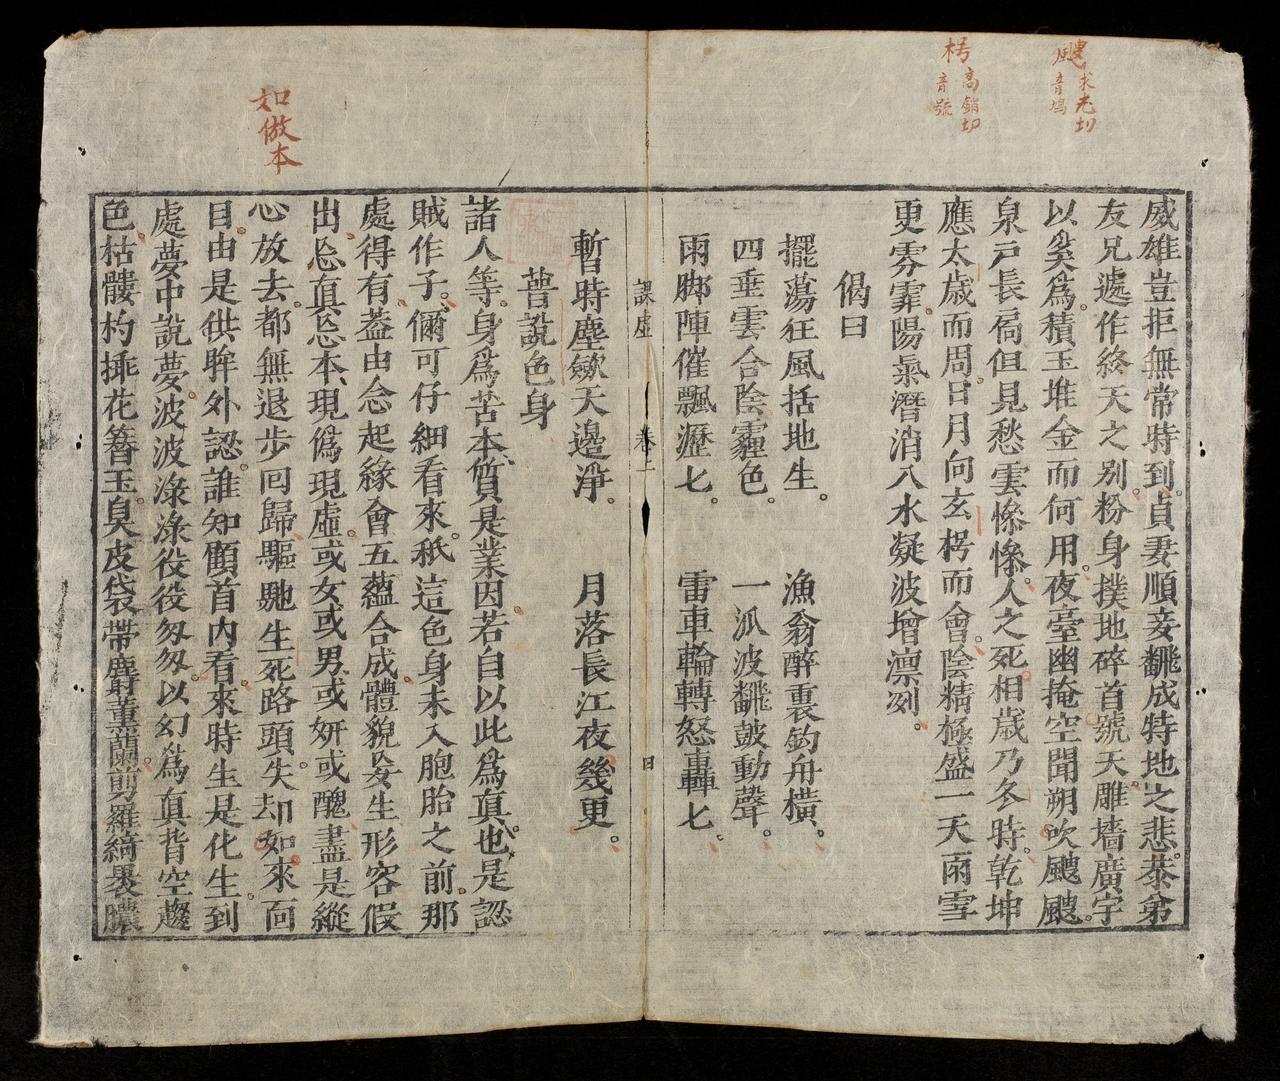 颼求尤切
風音鳩
枵高銷切
音號
如倣本
威雄豈拒無常時到貞妻順妾飜成特地之悲恭弟
友兄遞作終天之别粉身撲地碎首號天雕墻廣宇
以奚爲積玉堆金而何用夜臺幽掩空聞朔吹颼颼
泉戸長扄但見愁雲慘慘人之死相歲乃冬時乾坤
應太歲而周日月向玄枵而會陰精極盛一天雨雪
更雰霏陽氣潛消八水凝波增凛冽
偈曰
擺蕩狂風括地生 漁翁醉裏釣舟横
四垂雲合陰霾色 一派波飜皷動聲
雨脚陣催飄瀝七 雷車輪轉怒轟七
課虚 卷上 日
暫時塵歛天邊淨 月落長江夜幾更
普説色身
諸人等身爲苦本質是業因若自以此爲真也是認
賊作子儞可仔細看來秖這色身未入胞胎之前那
處得有葢由念起緣會五蘊合成體貌妄生形容假
出忘真忘本現僞現虚或女或男或妍或醜盡是縱
心放去都無退步回歸驅馳生死路頭失却如來面
目由是供眸外認誰知顧首内看來時生是化生到
處夢中説夢波波渌渌役役匆匆以幻爲真背空趨
色枯髏杓揷花簪玉臭皮袋帶麝薫蘭剪羅綺裹膿